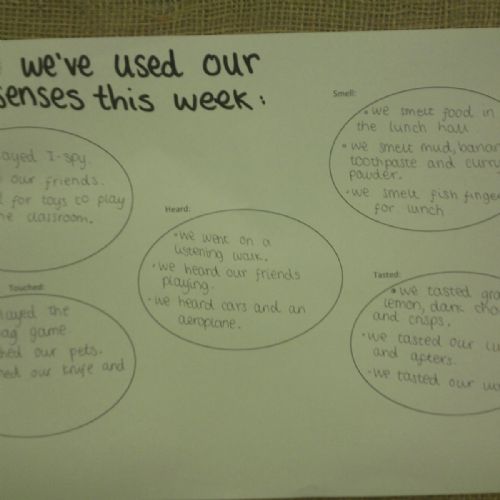 we've used our
senses this week:
played I-spy.
our friends.
for toys to play
classroom.
Touched:
played the
game
our pets.
our knife and
Heard:
• we went on a
listening walk.
• we heard our friends
playing.
• we heard cars and an
aeroplane.
Smell:
• we smelt food in
the lunch hall
• we smelt mud, banan
toothpaste and curry
powder.
• we smelt fish finger
for lunch
Tasted:
• we tasted gra
lemon, dark cho
and crisps.
• we tasted our lu
and afters.
• we tasted our